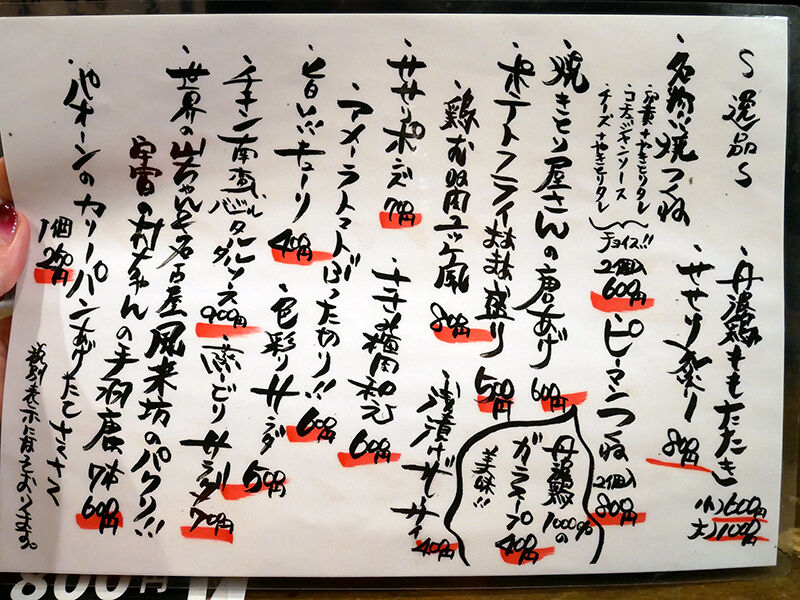 〜逸品〜
・丹波鶏ももたたき (小)600円
(大)1000円
・せせり炙り 800円
・名物!!焼つくね
卵黄+やきとりタレ
コチュジャンソース
チーズ+やきとりタレ
チョイス!!
2個入 600円
・ピーマンつくね 2個入 800円
・焼きとり屋さんの唐あげ 600円
・ポテトフライまあまあ盛り 500円
・鶏むね肉ユッケ風 800円
丹波鶏
1000%の
ガラスープ
400円
美味!!
・浅漬けザーサイ 400円
・ササミポンズ 700円
・ささみ梅肉和え 600円
・アメーラトマトぶった切り!! 600円
・旨い!!キューリ 400円
・色彩りサラダ 500円
・チキン南蛮バルタルタルソース 900円
・蒸しどりサラダ 700円
・世界の山ちゃんと名古屋風来坊のパクリ!!
宇宙の村ちゃんの手羽唐 7本 600円
・パオーンのカリーパンあげたてさくさく
1個 250円
税別表示となっております。
800円